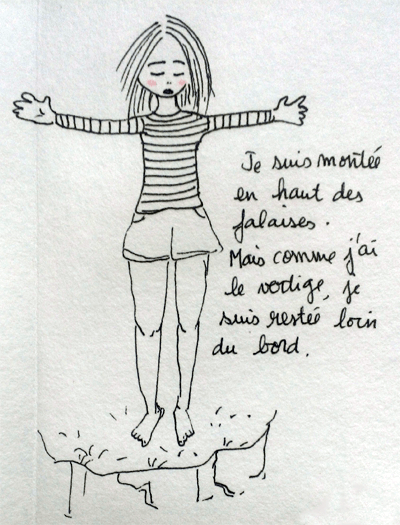 Je suis montée
en haut des
falaises.
Mais comme j'ai
le vertige, je
suis restée loin
du bord.